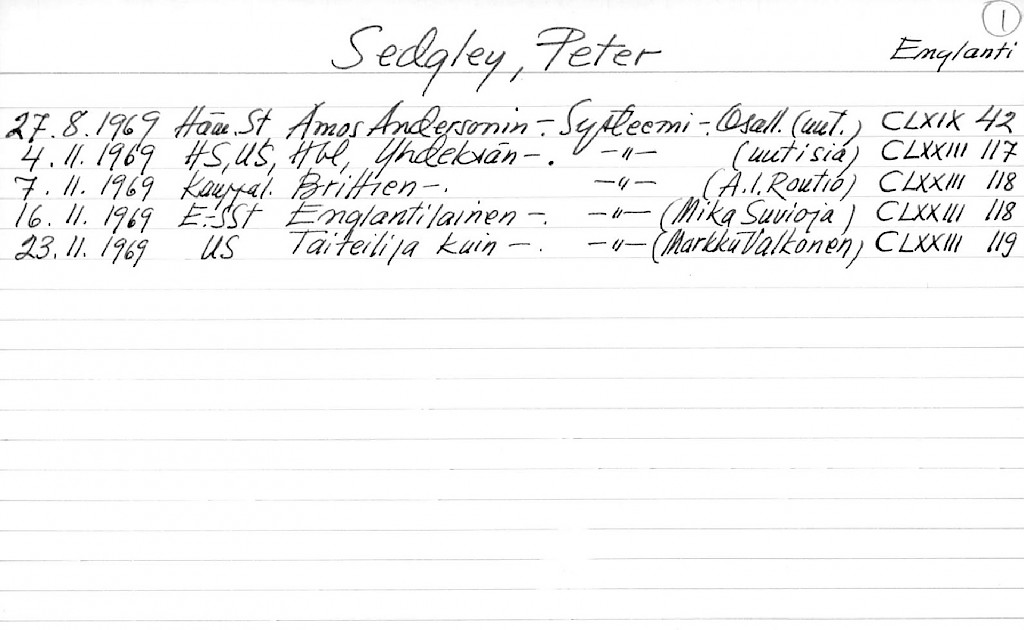 1
Sedgley, Peter Englanti
27.8.1969 Häm.St, Amos Andersonin -. Systeemi -. Osall. (uut.) CLXIX 42
4.11.1969 HS, US, Hbl, Yhdeksän -. -"- (uutisia) CLXXIII 117
7.11.1969 Kauppal. Brittien -. -"- (A.I. Routio) CLXXIII 118
16.11.1969 E-SSt Englantilainen -. -"- (Mika Suvioja) CLXXIII 118
23.11.1969 US Taiteilija kuin -. -"- (Markku Valkonen) CLXXIII 119